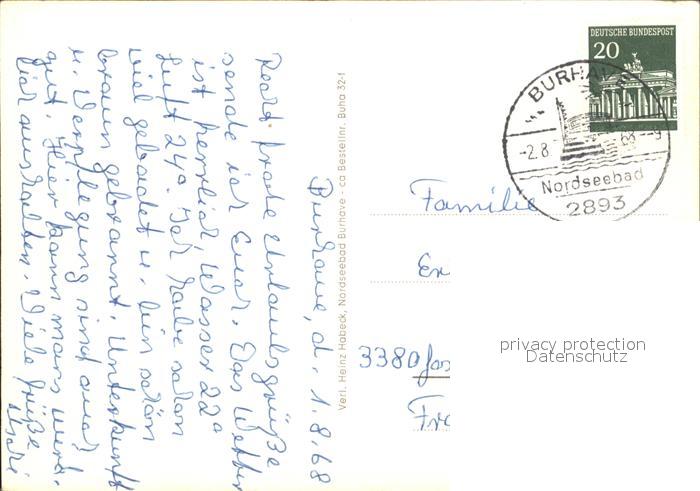 Burhave, d. 1.8.68
Recht frohe Urlaubsgrüße
sende ich Euch. Das Wetter
ist herrlich, Wasser 22°
Luft 24°. Ich habe schon
viel gebadet u. bin schön
braun gebrannt. Unterkunft
u. Verpflegung sind auch
gut. Hier kann man's wirk-
lich aushalten. Viele Grüße
Verl. Heinz Habeck, Nordseebad Burhave - ca Bestellnr. Buha 32-1
DEUTSCHE BUNDESPOST
20
BURHAVE
-2.8. 68--9
Nordseebad
2893
Familie
3380 Gos
privacy protection
Datenschutz